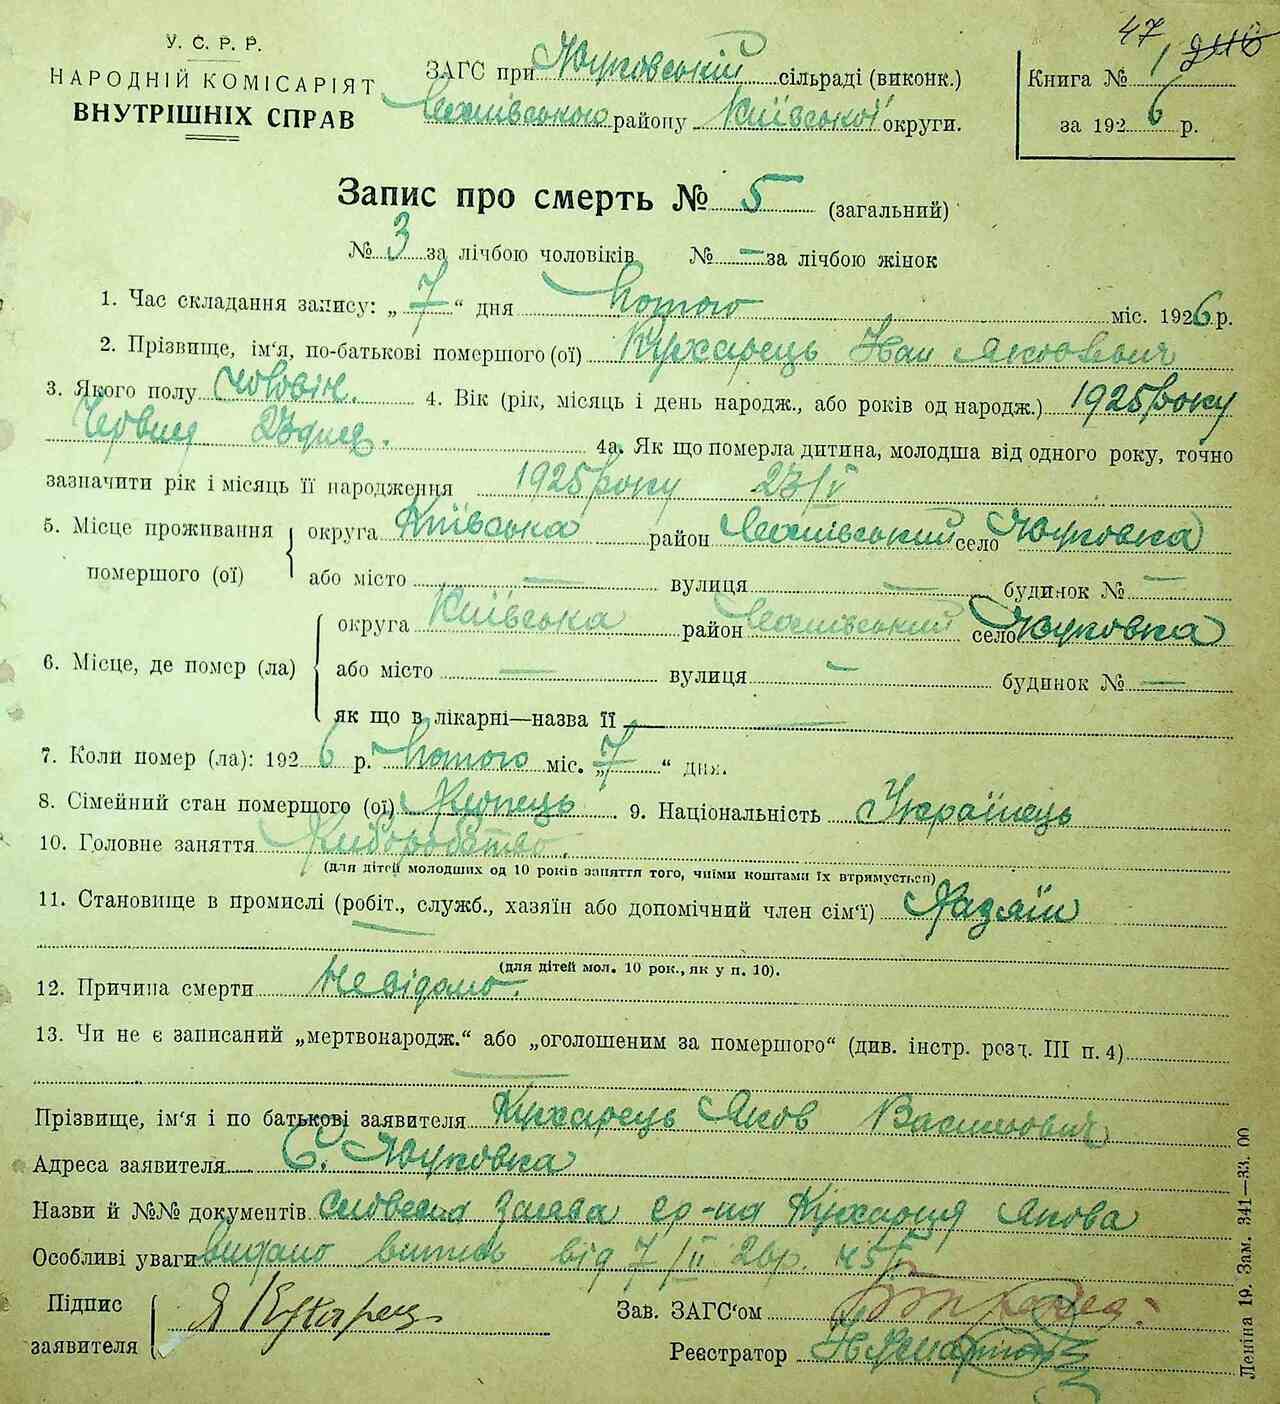 47
У. С. Р. Р.
НАРОДНІЙ КОМІСАРІЯТ
ВНУТРІШНІХ СПРАВ
ЗАГС при Жуковській сільраді (виконк.)
району Київської округи.
Книга № 1
за 1926 р.
Запис про смерть № 5 (загальний)
№ 3 за лічбою чоловіків № — за лічбою жінок
1. Час складання запису: „ 7 “ дня Лютого міс. 1926 р.
2. Прізвище, ім'я, по-батькові помершого (ої) Кухарець Іван Якович
3. Якого полу чоловік. 4. Вік (рік, місяць і день народж., або років од народж.) 1925 року
Червня 23 дня. 4а. Як що померла дитина, молодша від одного року, точно
зазначити рік і місяць її народження 1925 року 23/V
5. Місце проживання помершого (ої) округа Київська район село Жуковка
або місто — вулиця — будинок № —
6. Місце, де помер (ла) округа Київська район село Жуковка
або місто — вулиця — будинок № —
як що в лікарні—назва її —
7. Коли помер (ла): 1926 р. Лютого міс. „ 7 “ дня.
8. Сімейний стан помершого (ої) 9. Національність Українець
10. Головне заняття Хліборобство.
(для дітей молодших од 10 років заняття того, чиїми коштами їх втримується)
11. Становище в промислі (робіт., служб., хазяїн або допомічний член сім'ї) Хазяїн
(для дітей мол. 10 рок., як у п. 10).
12. Причина смерти Невідомо.
13. Чи не є записаний „мертвонародж.“ або „оголошеним за помершого“ (див. інстр. розд. III п. 4)
—
Прізвище, ім'я і по батькові заявителя Кухарець Яков Васильович
Адреса заявителя С. Жуковка
Назви й №№ документів Словесна заява гр-на Кухарця Якова
Особливі уваги видано витяг від 7/II 26р.
Підпис заявителя Я Кухарец
Зав. ЗАГС'ом
Реєстратор
Леніна 19. Зам. 341—33.00